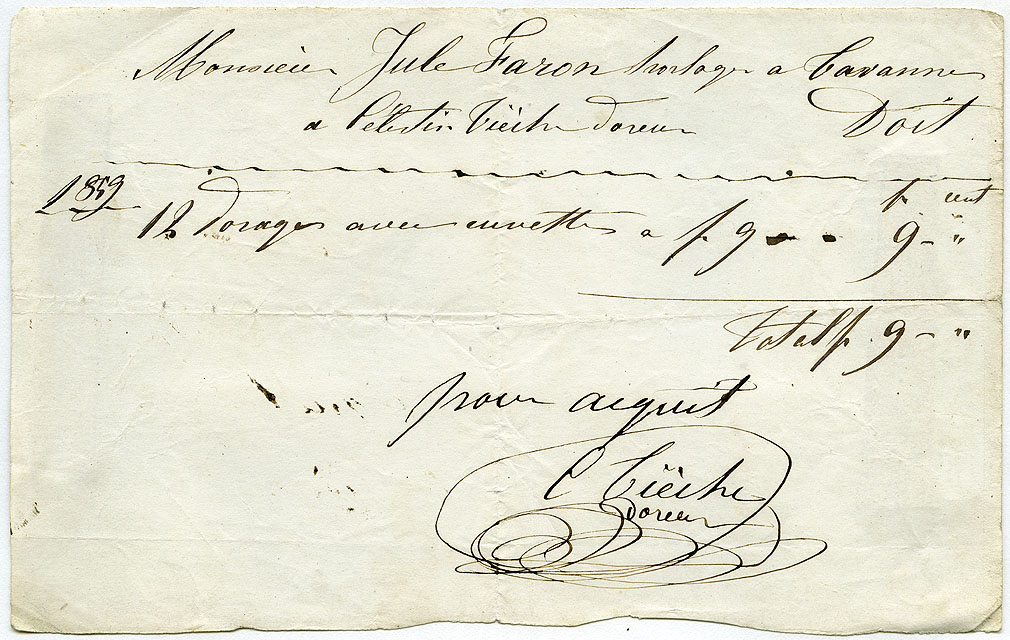 Monsieur Jule Faron horloger a Tavanne
a Célestin Tièche doreur Doit
1859
fr cent
12 Dorages avec cuvettes a fr 9 - - 9 - "
Total fr. 9 - "
pour acquit
C Tièche
doreur